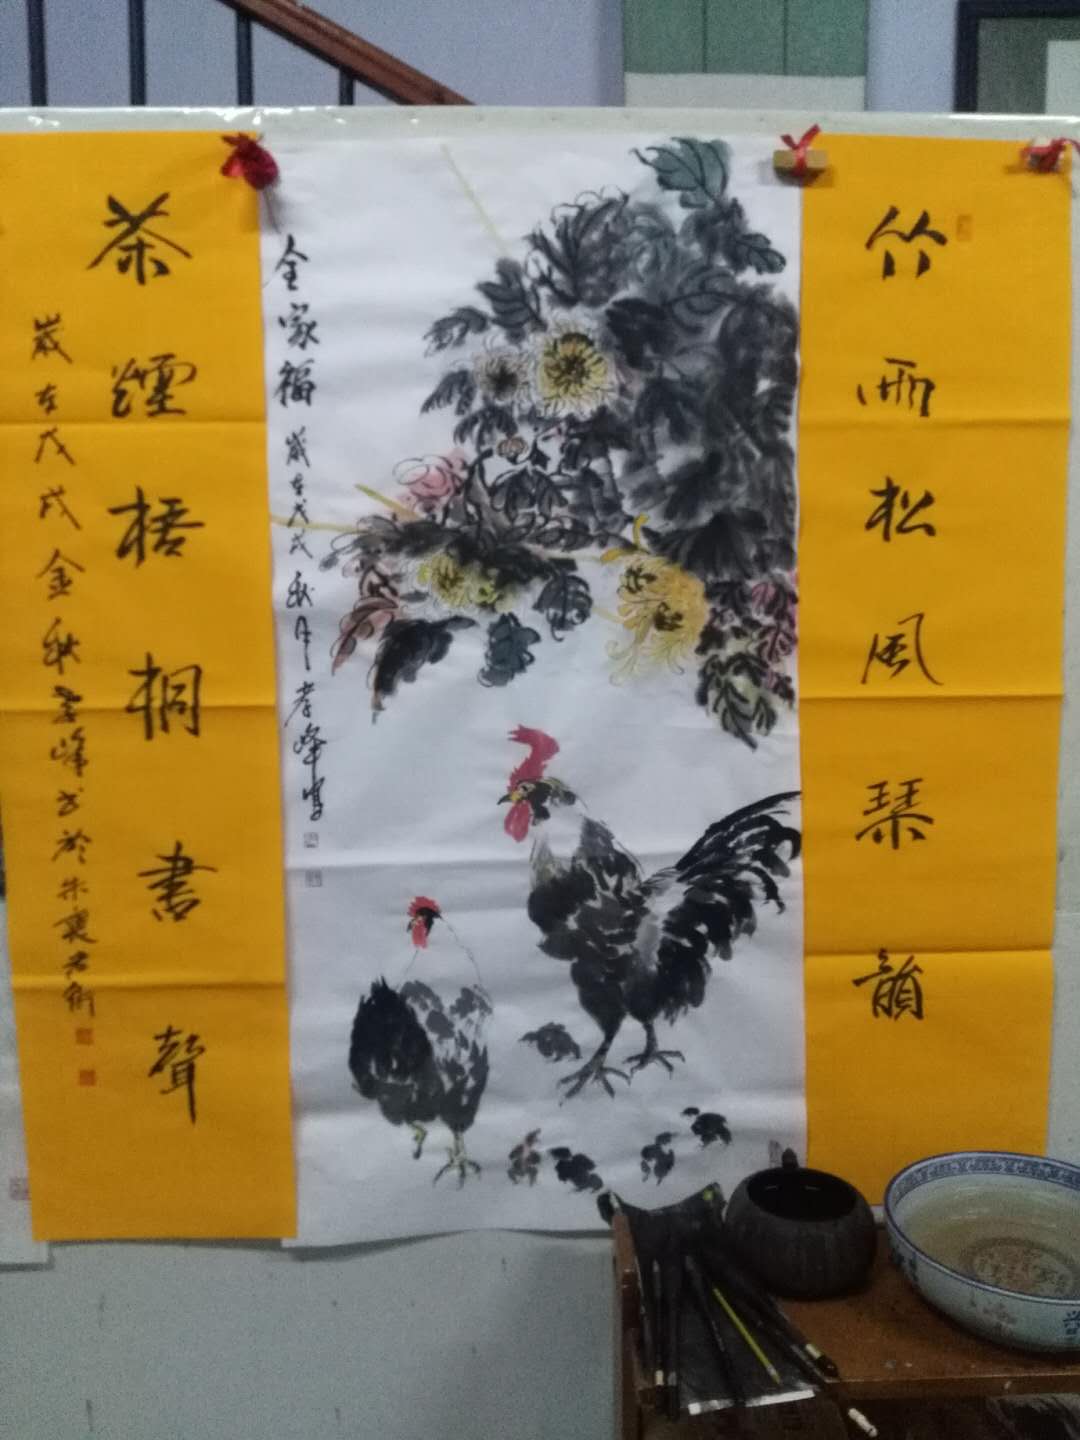 竹雨松風琴韻
全家福
歲在戊戌秋月孝峰寫
茶煙梧桐書聲
歲在戊戌金秋孝峰書於